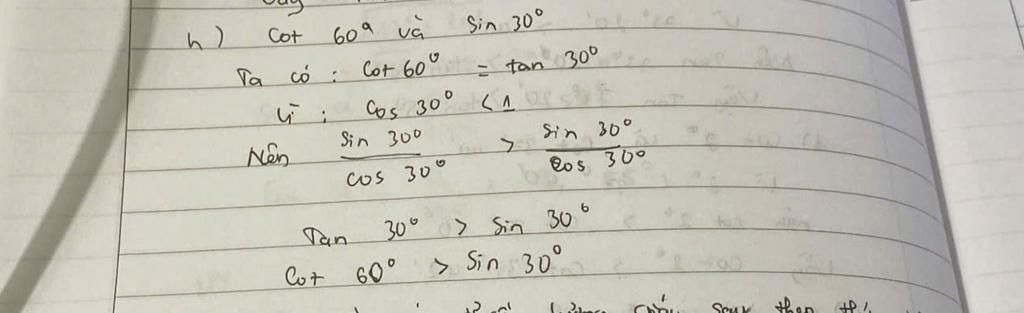 h) Cot 60° và Sin 30°
Ta có : Cot 60° = tan 30°
Vì : Cos 30° < 1
Nên sin 30° / cos 30° > sin 30° / cos 30°
Tan 30° > Sin 30°
Cot 60° > Sin 30°